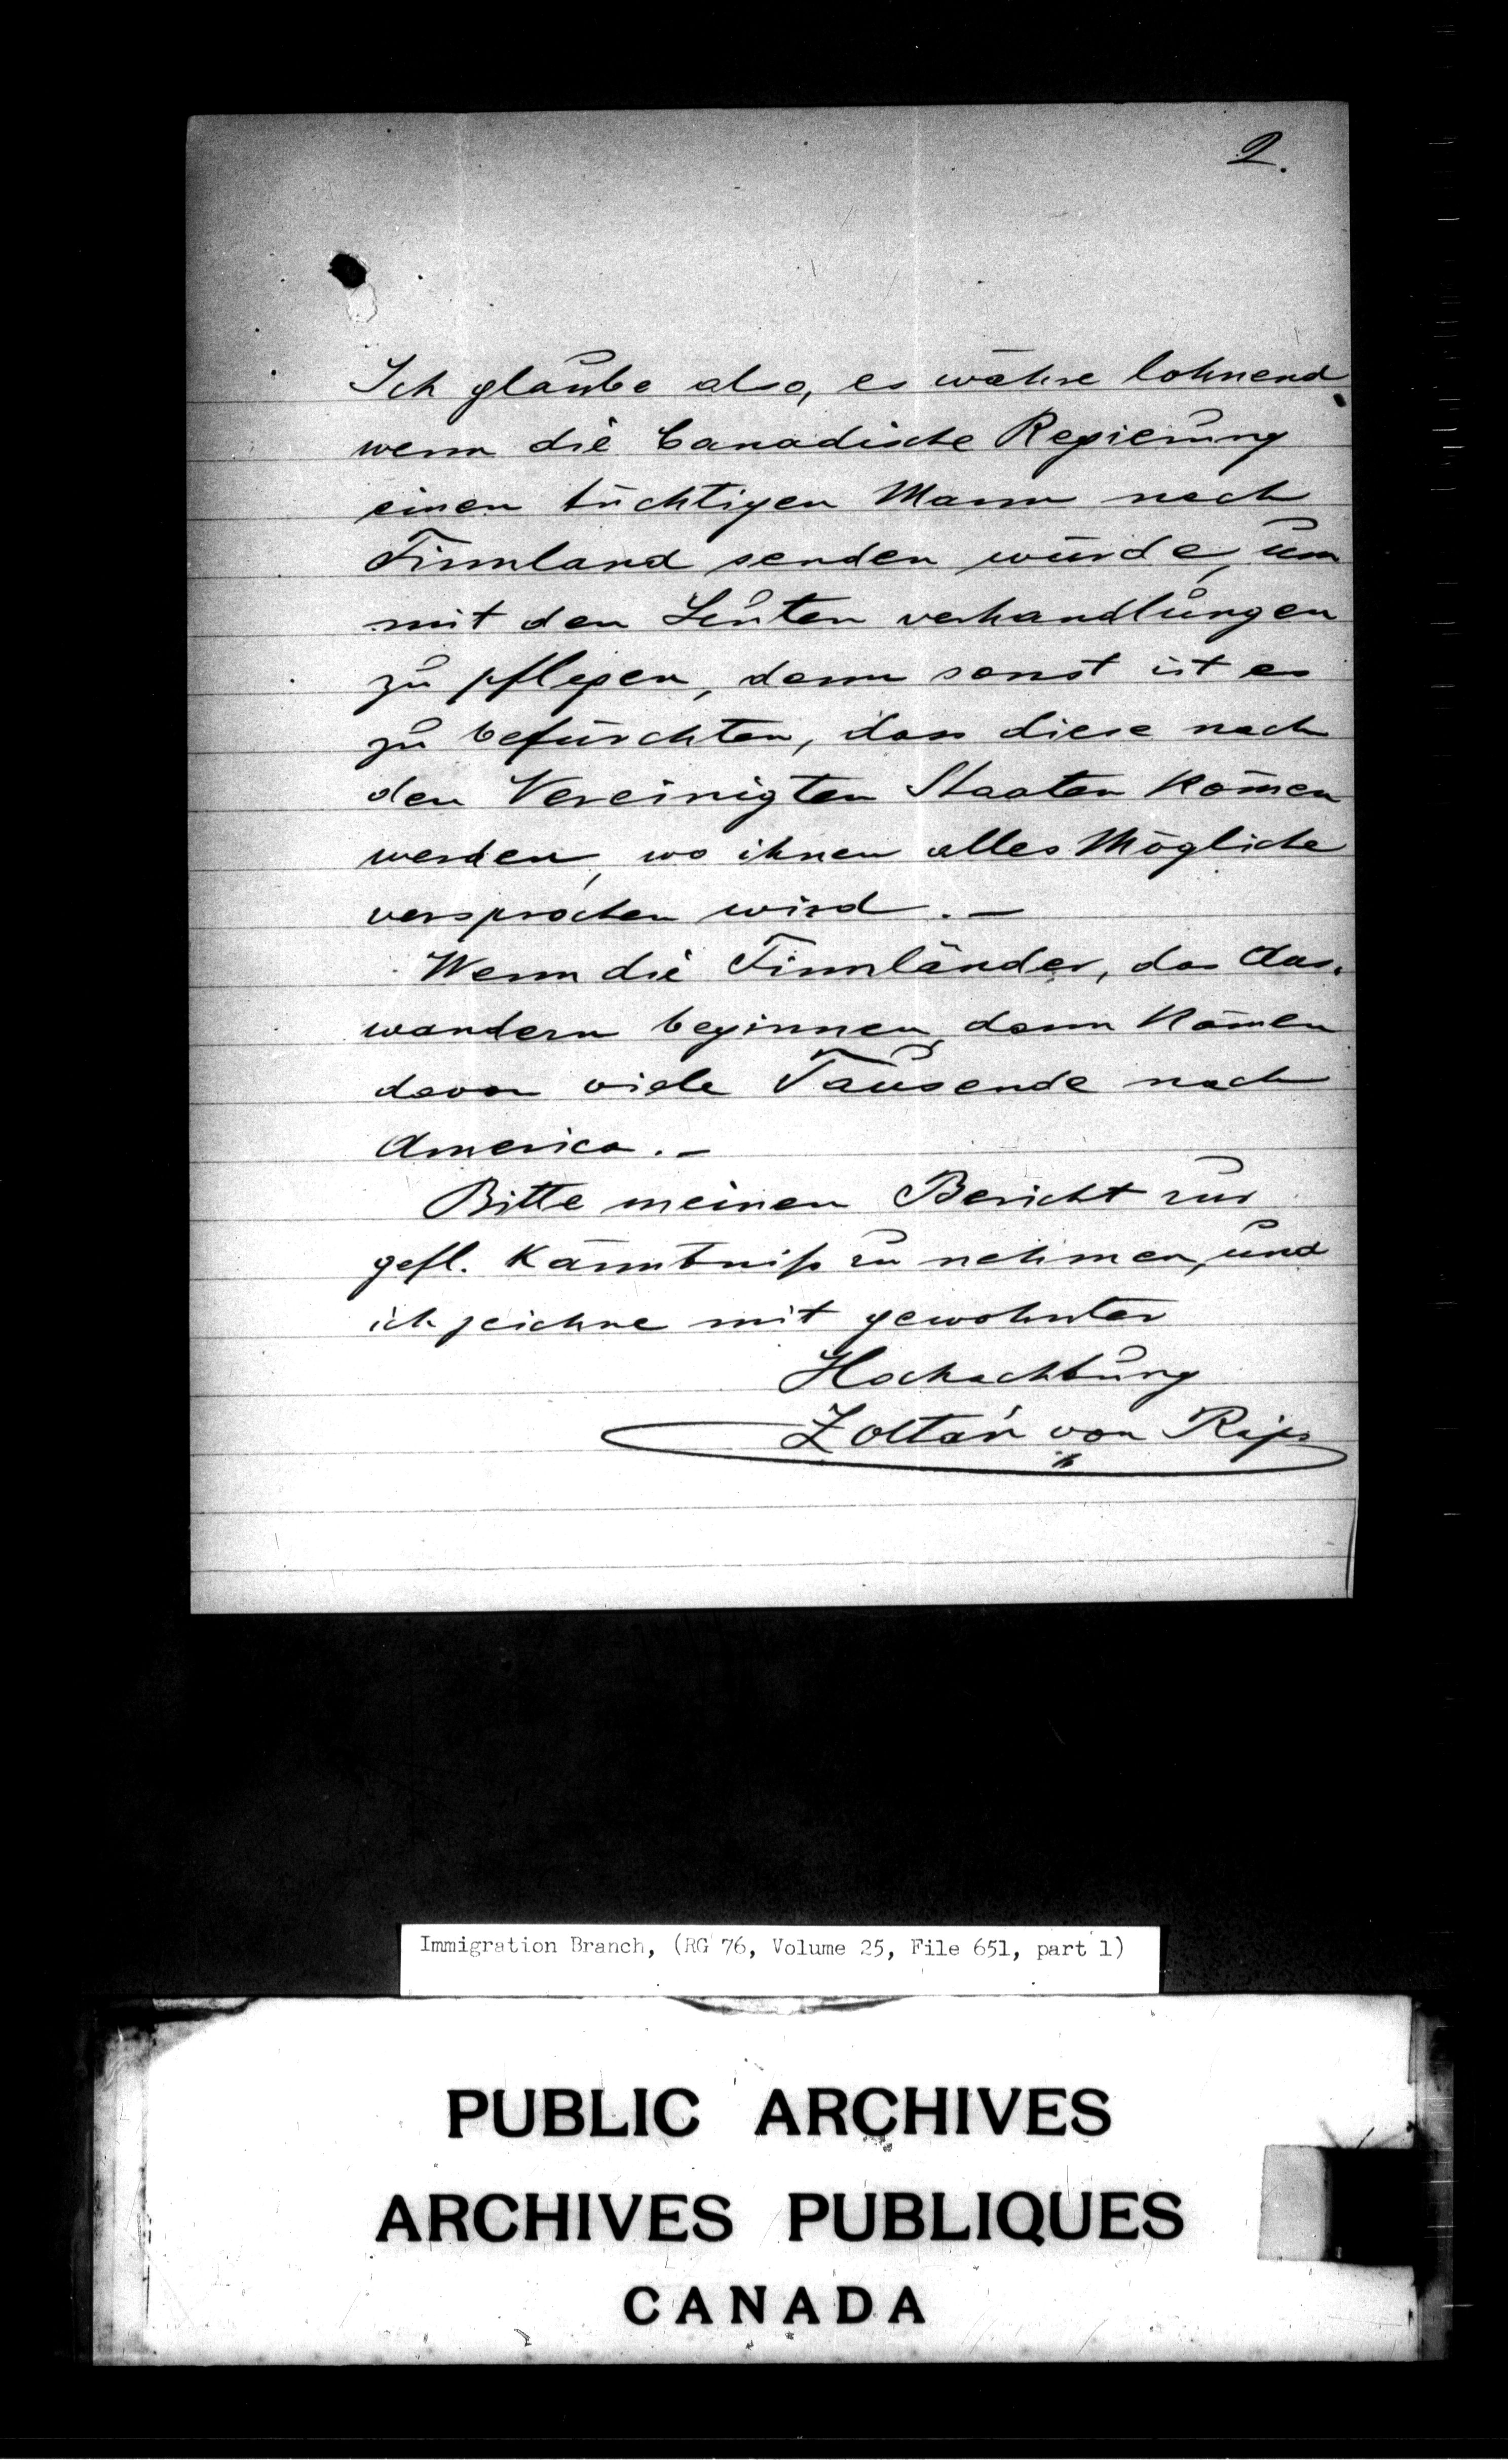 2.
Ich glaube also, es währe lohnend
wenn die Canadische Regierung
einen tüchtigen Mann nach
Finnland senden würde, um
mit den Leuten verhandlungen
zu pflegen, denn sonst ist es
zu befürchten, dass diese nach
den Vereinigten Staaten kom̄en
werden, wo ihnen alles Mögliche
versprochen wird. –
Wenn die Finnländer, das Aus-
wandern beginnen, dann kom̄en
davon viele Tausende nach
America. –
Bitte meinen Bericht zur
gefl. Känntniß zu nehmen, und
ich zeichne mit gewohnter
Hochachtung
Zoltán von
Immigration Branch, (RG 76, Volume 25, File 651, part 1)
PUBLIC ARCHIVES
ARCHIVES PUBLIQUES
CANADA